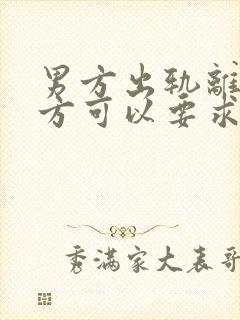 男方出轨離
方可以要求
秀满家大表哥